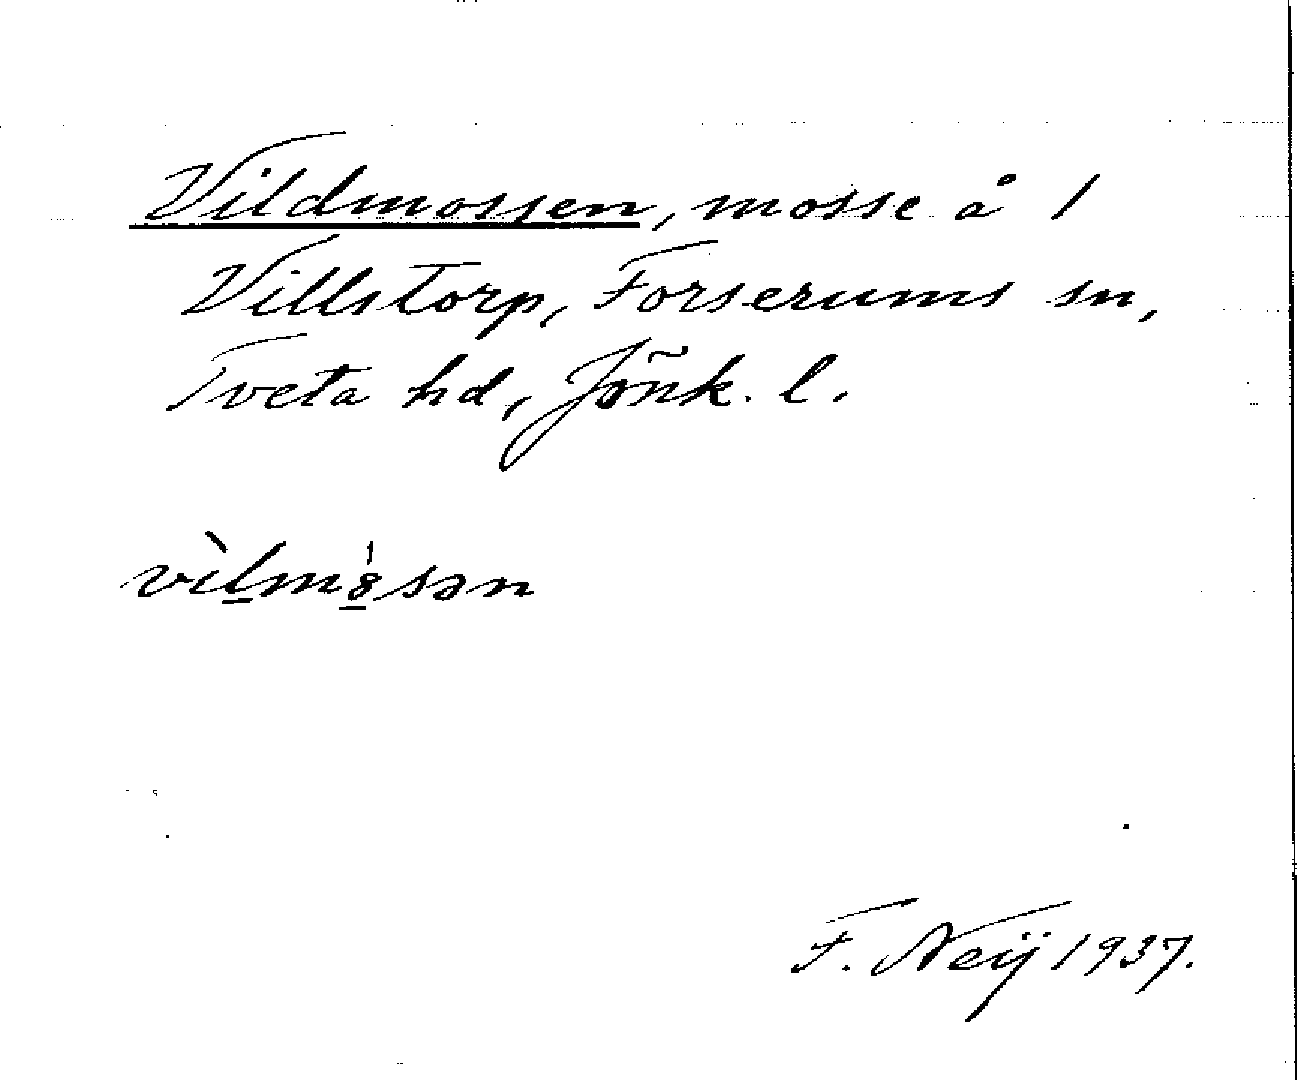 Vildmossen, mosse å 1
Villstorp, Forserums sn,
Tveta hd, Jönk. l.
vìlmȯsən
F. Neij 1937.